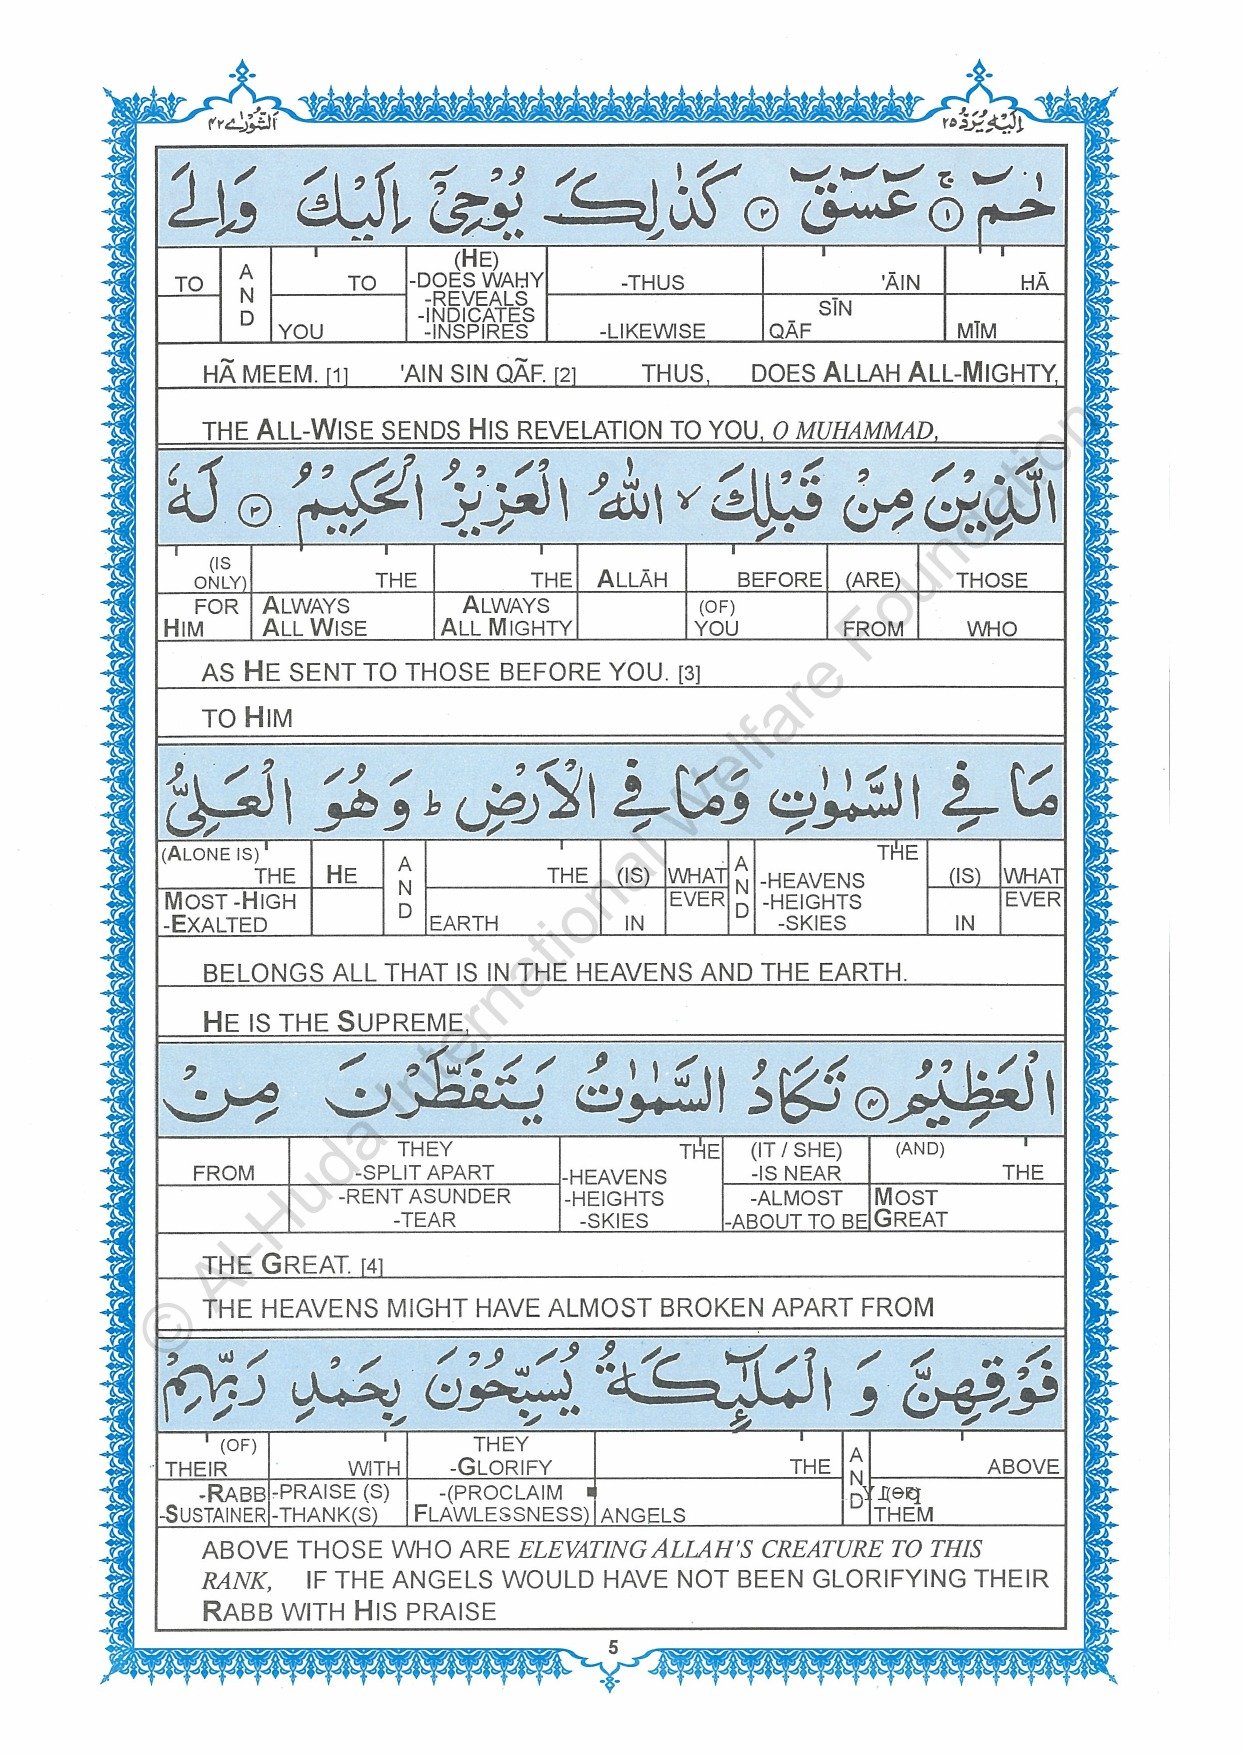 الشورٰى ٤٢
إليه يرد ٢٥
حٰمٓ ۚ ١ عٓسٓقٓ ٢ كَذٰلِكَ يُوْحِيْٓ اِلَيْكَ وَاِلَى
TO AND TO (HE) -THUS 'ĀIN ḤĀ
-DOES WAḤY
-REVEALS SĪN
-INDICATES
YOU -INSPIRES -LIKEWISE QĀF MĪM
HÃ MEEM. [1] 'AIN SIN QÃF. [2] THUS, DOES ALLAH ALL-MIGHTY,
THE ALL-WISE SENDS HIS REVELATION TO YOU, O MUHAMMAD,
الَّذِيْنَ مِنْ قَبْلِكَ ۙ اللّٰهُ الْعَزِيْزُ الْحَكِيْمُ ٣ لَهٗ
(IS ONLY) THE THE ALLĀH BEFORE (ARE) THOSE
FOR HIM ALWAYS ALL WISE ALWAYS ALL MIGHTY (OF) YOU FROM WHO
AS HE SENT TO THOSE BEFORE YOU. [3]
TO HIM
مَا فِي السَّمٰوٰتِ وَمَا فِي الْاَرْضِ ؕ وَهُوَ الْعَلِيُّ
(ALONE IS) THE HE AND THE (IS) WHAT AND THE (IS) WHAT
MOST -HIGH -EXALTED EARTH IN EVER -HEAVENS -HEIGHTS -SKIES IN EVER
BELONGS ALL THAT IS IN THE HEAVENS AND THE EARTH.
HE IS THE SUPREME,
الْعَظِيْمُ ٤ تَكَادُ السَّمٰوٰتُ يَتَفَطَّرْنَ مِنْ
FROM THEY -SPLIT APART THE (IT / SHE) -IS NEAR (AND) THE
-RENT ASUNDER -TEAR -HEAVENS -HEIGHTS -SKIES -ALMOST -ABOUT TO BE MOST GREAT
THE GREAT. [4]
THE HEAVENS MIGHT HAVE ALMOST BROKEN APART FROM
فَوْقِهِنَّ وَ الْمَلٰٓئِكَةُ يُسَبِّحُوْنَ بِحَمْدِ رَبِّهِمْ
(OF) THEIR WITH THEY -GLORIFY THE AND ABOVE
-RABB -SUSTAINER -PRAISE (S) -THANK(S) -(PROCLAIM FLAWLESSNESS) ANGELS THEM
ABOVE THOSE WHO ARE ELEVATING ALLAH'S CREATURE TO THIS
RANK, IF THE ANGELS WOULD HAVE NOT BEEN GLORIFYING THEIR
RABB WITH HIS PRAISE
5
© Al-Huda International Welfare Foundation